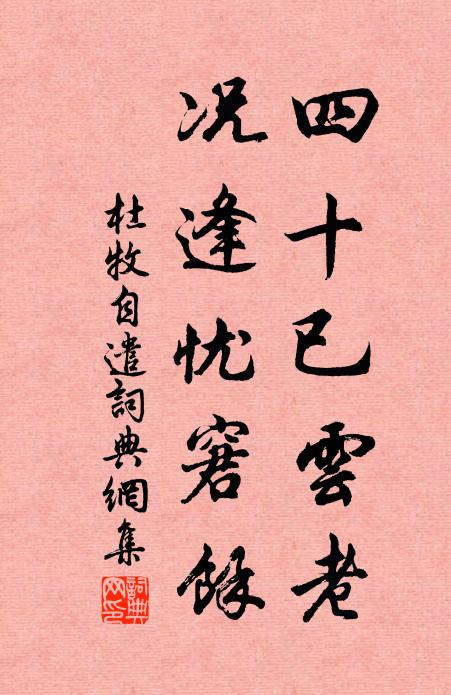 四十已雲老
况逢忧窘餘
杜牧自遣詞典網集
詞典網印